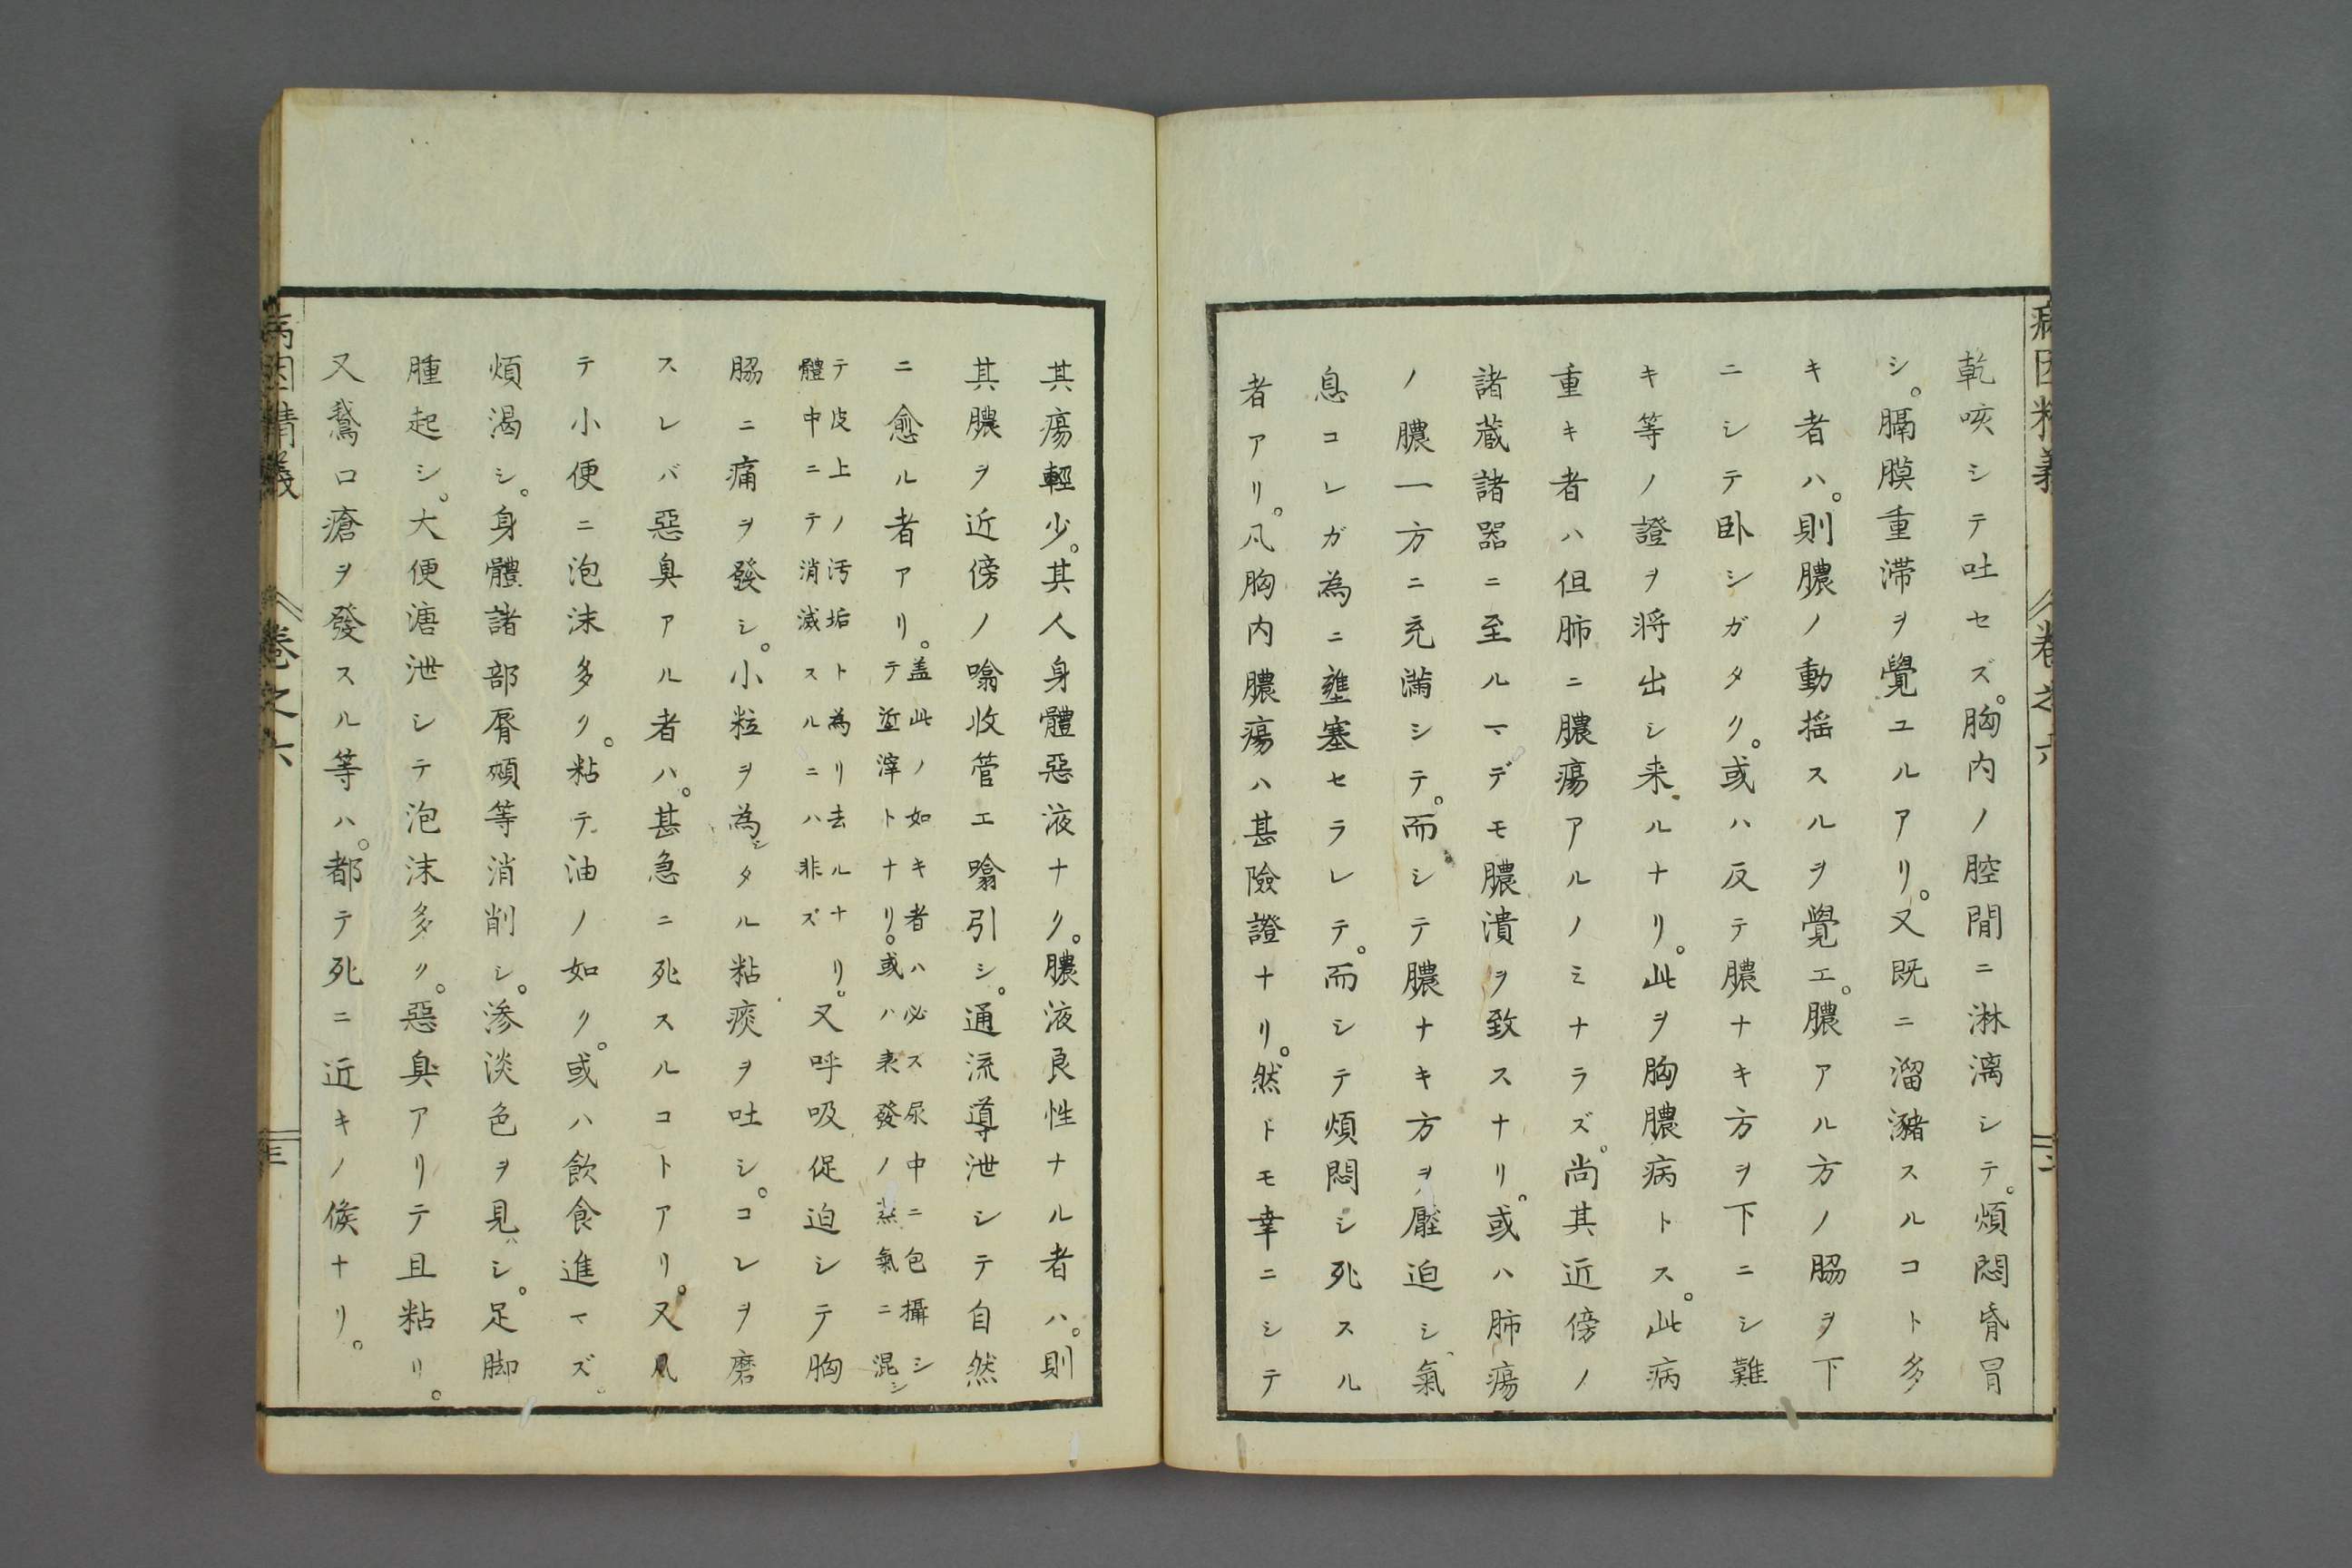 乾咳シテ吐セズ。胸内ノ腔間ニ淋漓シテ。煩悶昏冒
シ。膈膜重滞ヲ覺ユルアリ。又既ニ溜瀦スルコト多
キ者ハ。則膿ノ動揺スルヲ覺エ。膿アル方ノ脇ヲ下
ニシテ卧シガタク。或ハ反テ膿ナキ方ヲ下ニシ難
キ等ノ證ヲ将出シ来ルナリ。此ヲ胸膿病トス。此病
重キ者ハ但肺ニ膿瘍アルノミナラズ。尚其近傍ノ
諸蔵諸器ニ至ルマデモ膿潰ヲ致スナリ。或ハ肺瘍
ノ膿一方ニ充満シテ。而シテ膿ナキ方ヲ壓迫シ氣
息コレガ為ニ壅塞セラレテ。而シテ煩悶シ死スル
者アリ。凡胸内膿瘍ハ甚險證ナリ。然ドモ幸ニシテ
其瘍輕少。其人身體惡液ナク。膿液良性ナル者ハ。則
其膿ヲ近傍ノ噏收管エ噏引シ。通流導泄シテ自然
ニ愈ル者アリ。
盖此ノ如キ者ハ必ズ尿中ニ包攝シ
テ近滓トナリ。或ハ表發ノ蒸氣ニ混シ
テ皮上ノ汚垢ト為リ去ルナリ。
體中ニテ消滅スルニハ非ズ
又呼吸促迫シテ胸
脇ニ痛ヲ發シ。小粒ヲ為シタル粘痰ヲ吐シ。コレヲ磨
スレバ惡臭アル者ハ。甚急ニ死スルコトアリ。又凡
テ小便ニ泡沫多ク。粘テ油ノ如ク。或ハ飲食進マズ。
煩渇シ。身體諸部脣頰等消削シ。渗淡色ヲ見ハシ。足脚
腫起シ。大便溏泄シテ泡沫多ク。惡臭アリテ且粘リ。
又鵞口瘡ヲ發スル等ハ。都テ死ニ近キノ候ナリ。
病因精義 卷之六